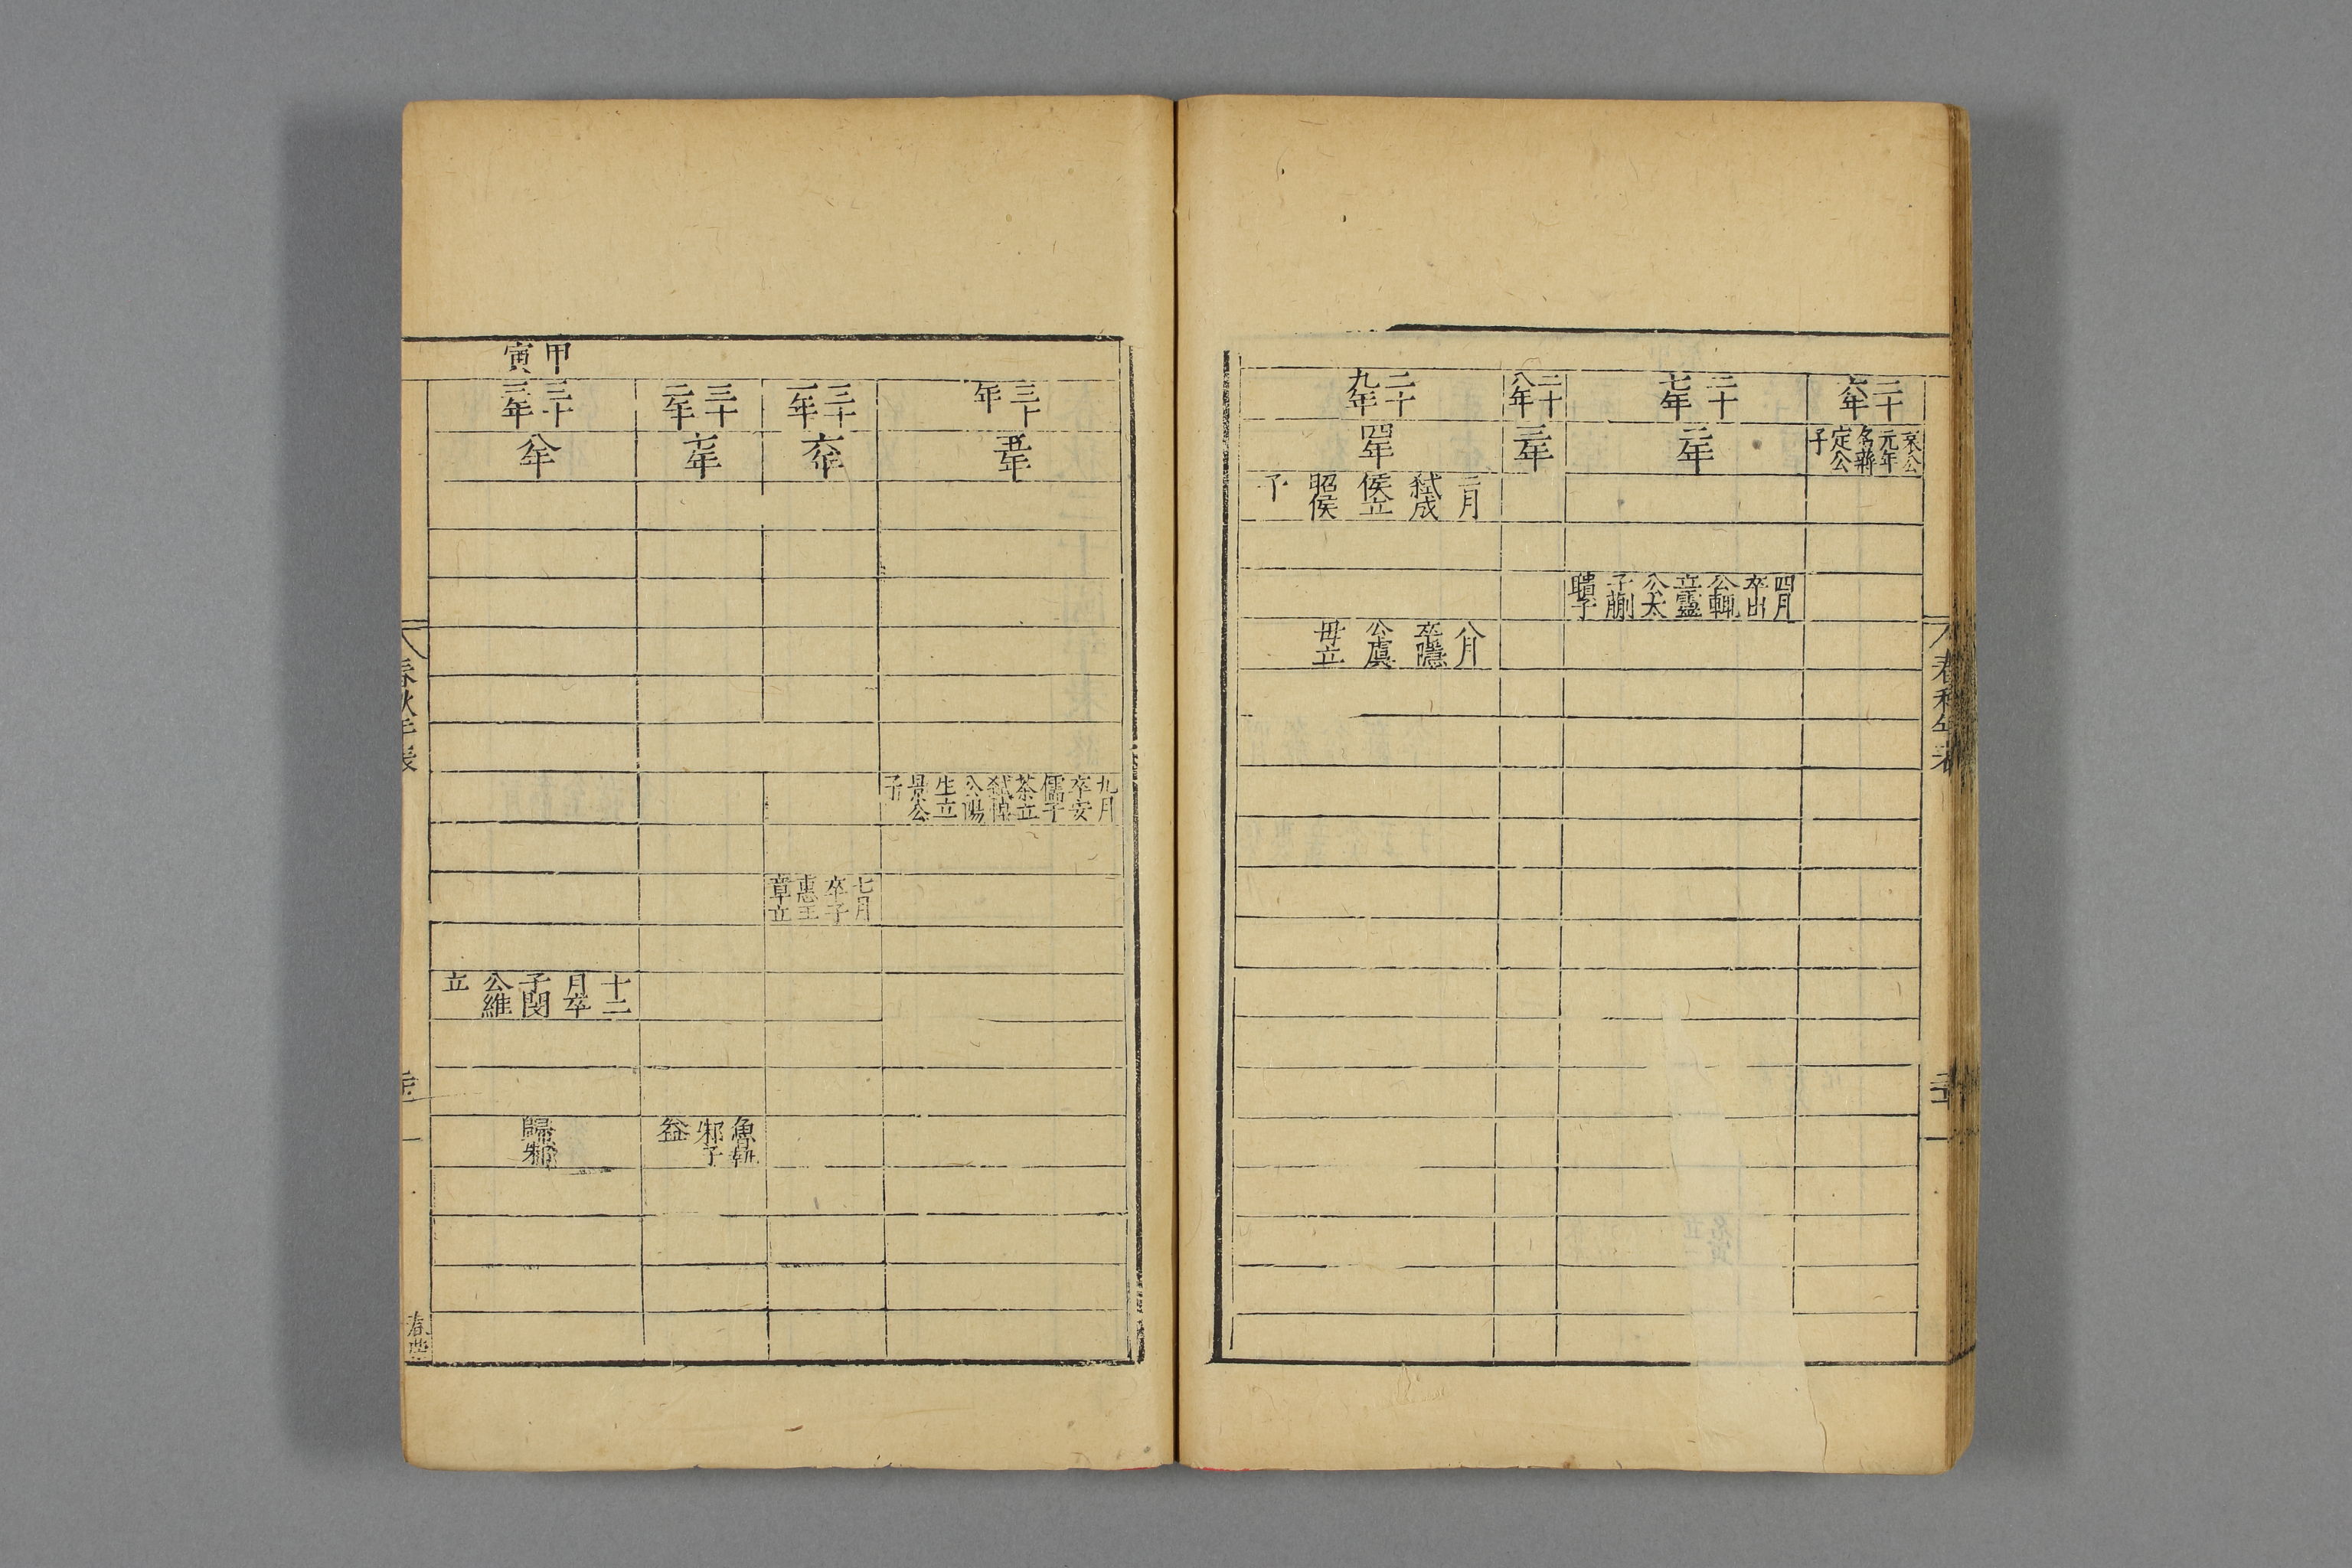 春秋年表
二十
六年
哀公
元年
名蔣
定公
子
二十
七年
二年
四月
卒出
公輒
立靈
公太
子蒯
聵子
二十
八年
三年
二十
九年
四年
二月
弒成
侯立
昭侯
子
八月
卒隱
公虞
毋立
三十
年
五年
九月
卒安
儒子
荼立
弒悼
公陽
生立
景公
子
三十
一年
六年
七月
卒子
惠王
章立
三十
二年
七年
魯執
邾子
益
甲
寅
三十
三年
八年
十二
月卒
子閔
公維
立
歸邾
春秋年表